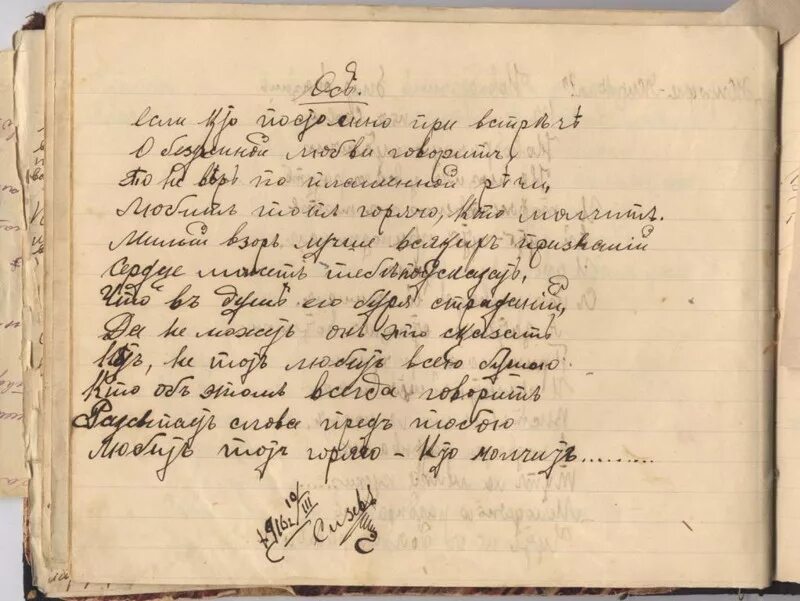 Если кто постоянно при встрѣчѣ
О безумной любви говоритъ,
То не вѣрь по пламенной рѣчи,
Любитъ тотъ горячо, кто молчитъ.
Милый взоръ лучше всякихъ признаній
Сердце можетъ тебѣ подсказать,
Что въ душѣ его буря страданій,
Да не можетъ онъ это сказать
Нѣтъ, не тотъ любитъ всею душою
Кто объ этомъ всегда говоритъ
слова предъ тобою
Любитъ тотъ горячо – Кто молчитъ.........
19 10/III 16